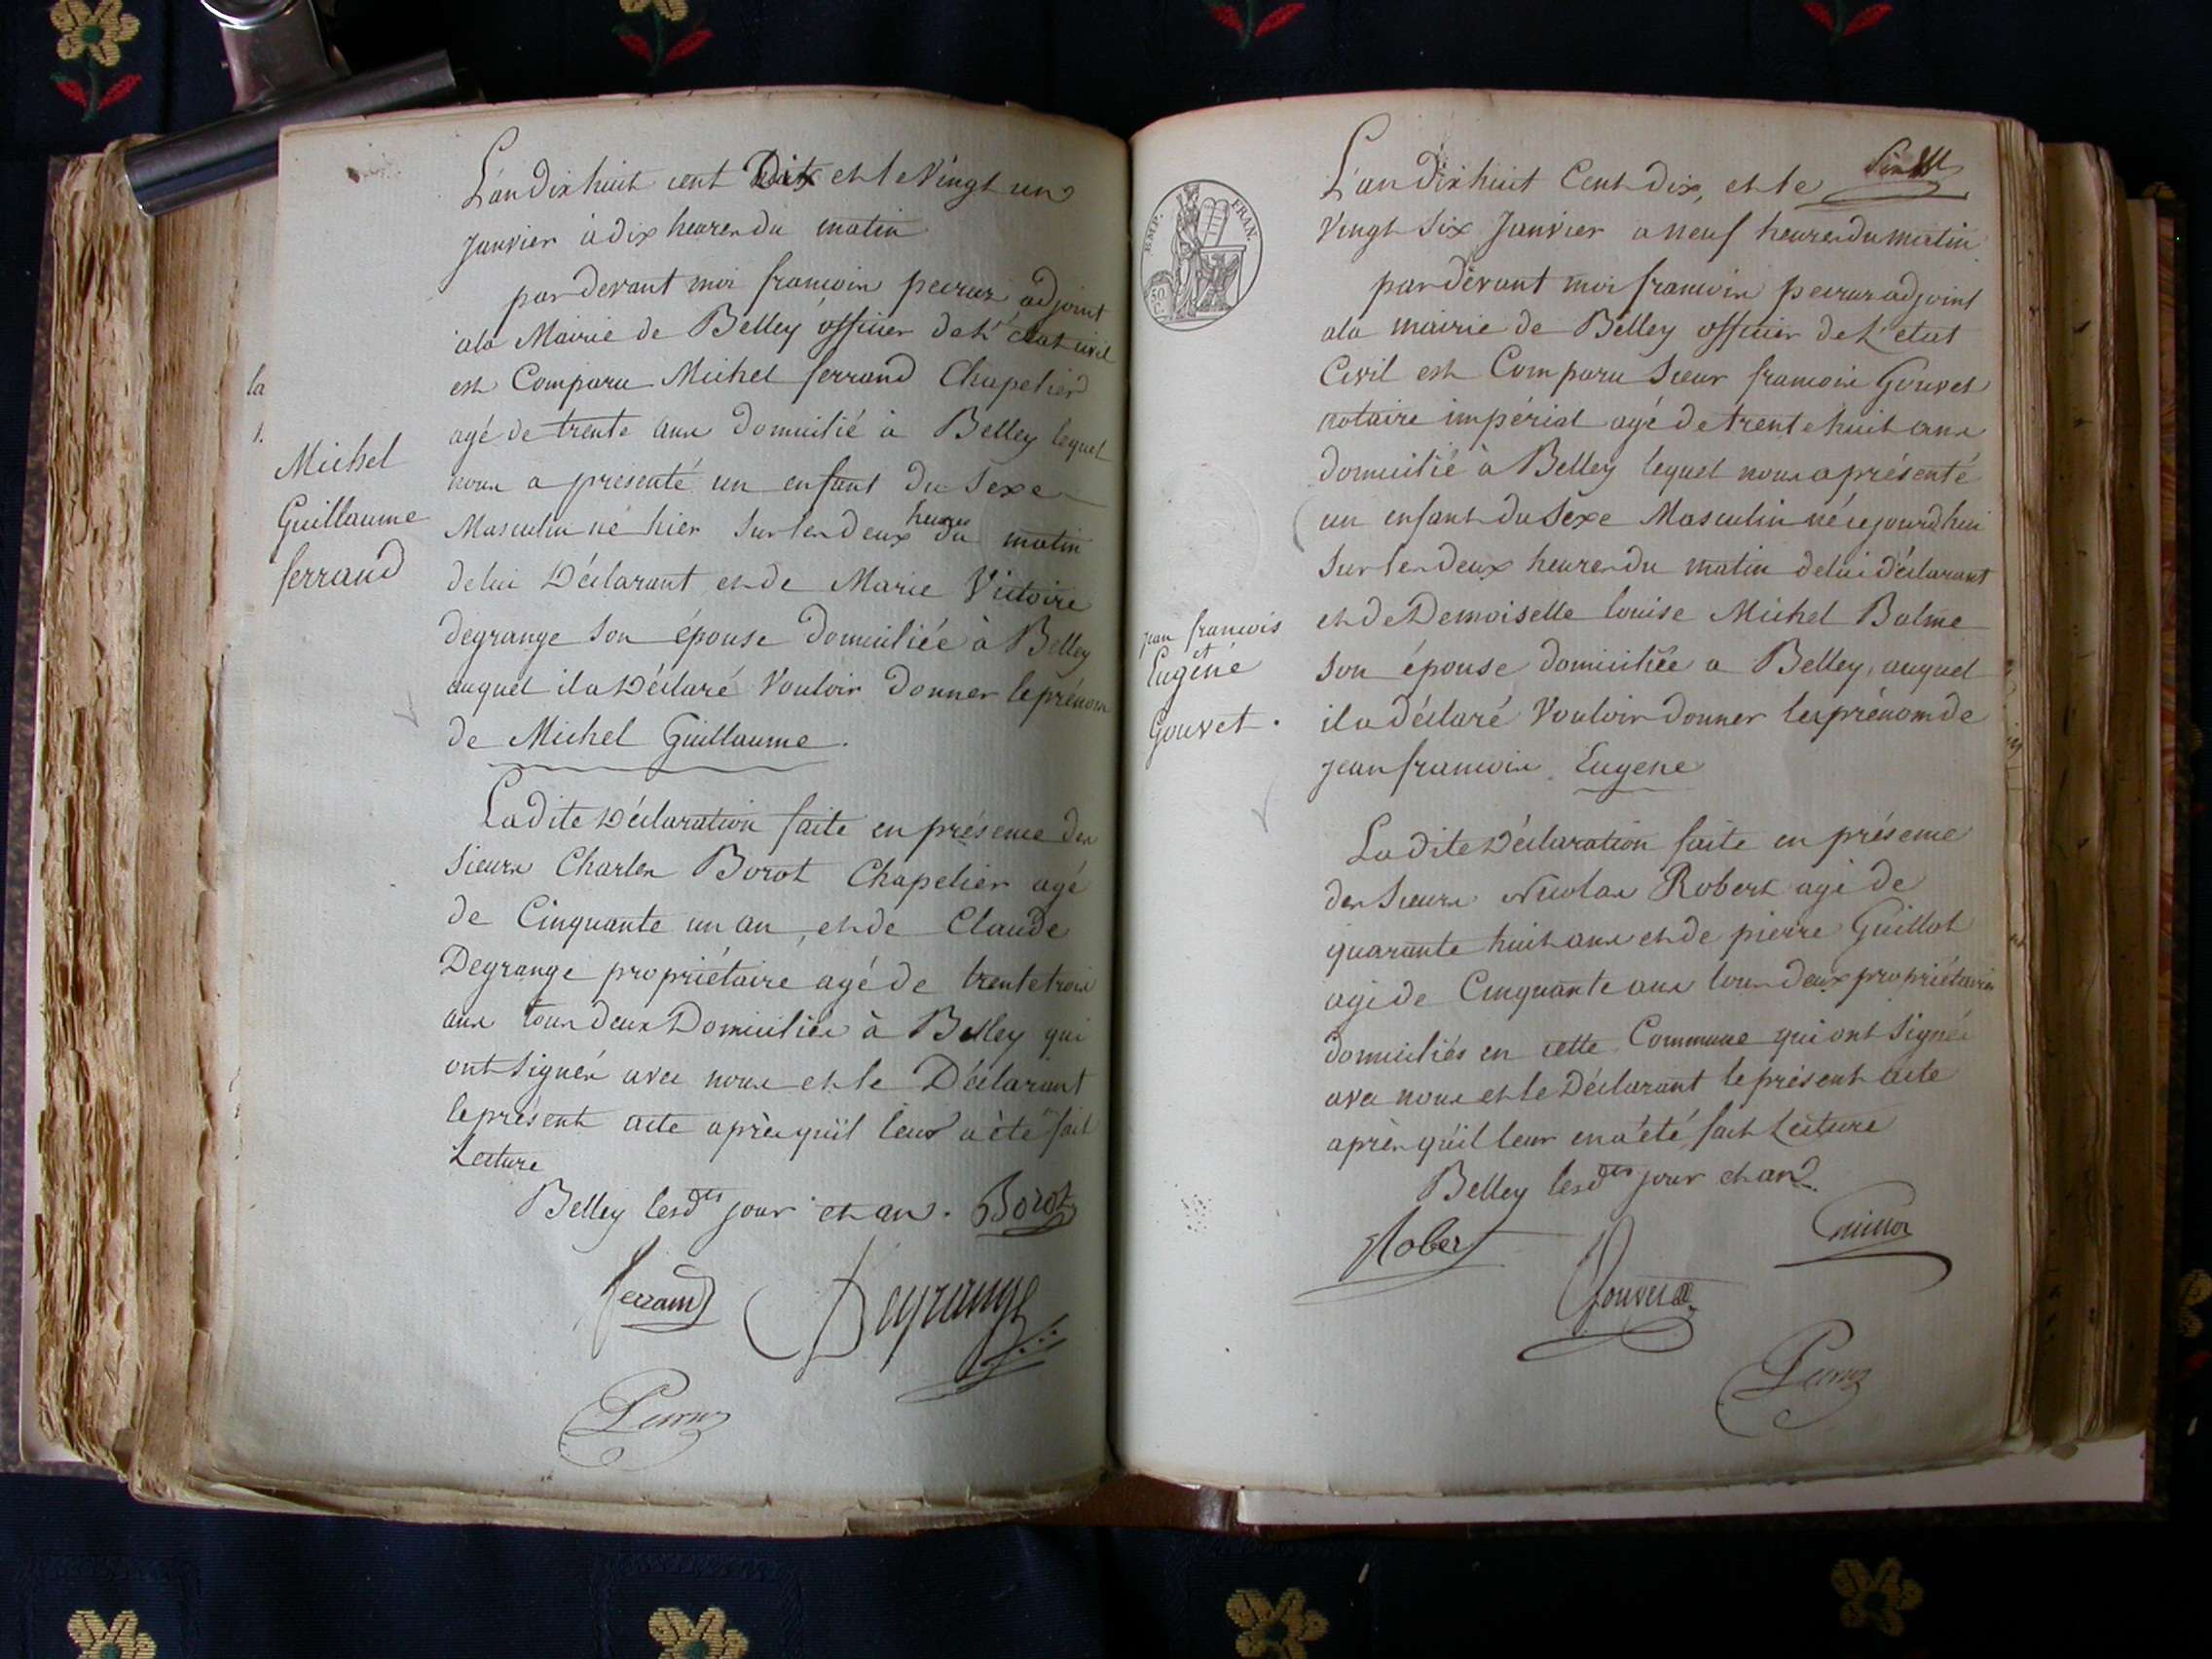 L'an dix huit cent Dix et le Vingt un
Janvier à dix heures du matin
par devant moi françois peirux adjoint
à la Mairie de Belley officier de L'état civil
est Comparu Michel ferrand Chapelier
agé de trente ans Domicilié à Belley lequel
nous a présenté un enfant Du Sexe
heures
Masculin né hier sur les deux du matin
de lui Déclarant et de Marie Victoire
degrange son épouse domiciliée à Belley
auquel il a Déclaré Vouloir donner le prénom
de Michel Guillaume.
La dite Déclaration faite en présence des
sieurs Charles Borot Chapelier agé
de Cinquante un an, et de Claude
Degrange propriétaire agé de trente trois
ans tous deux Domiciliés à Belley qui
ont signés avec nous et le Déclarant
le présent acte après qu'il leur a été fait
Lecture
Belley lesdts jour et an. Borot
ferrand Degrange
la
Michel
Guillaume
ferrand
L'an dix huit Cent dix, et le
Vingt Six Janvier a neuf heures du matin
par dévant moi françois peirux adjoint
a la mairie de Belley officier de L'etat
Civil est Comparu Sieur françois Gouvet
notaire impérial agé de trente huit ans
domicilié à Belley lequel nous a présenté
un enfant du Sexe Masculin né cejourd'hui
sur les deux heures du matin de lui déclarant
et de Demoiselle louise Michel Balme
son épouse domiciliée a Belley, auquel
il a déclaré Vouloir donner les prénom de
jean françois Eugene
La dite Déclaration faite en présence
des Sieurs Nicolas Robert agé de
quarante huit ans et de pierre Guillot
agé de Cinquante ans tous deux propriétaires
domiciliés en cette Commune qui ont signés
avec nous et le Déclarant le présent acte
après qu'il leur en a été fait Lecture
Belley lesdts jour et an
Robert Gouvet
EMP. FRAN.
50
C.
jean françois
et
Eugéne
Gouvet.